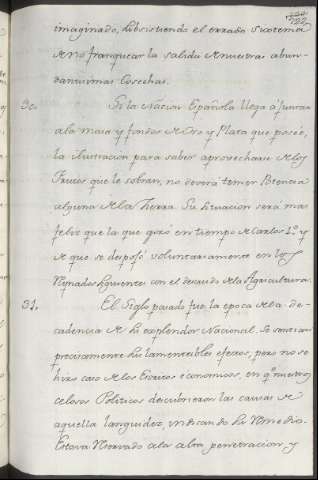 122
imaginado, subsistiendo el errado Sistema
de no franquear la salida de nuestras abun-
dantisimas Cosechas.
30. Si la Nacion Española llega á juntar
a la masa y fondos de Oro y Plata que posee,
la ilustracion para saber aprovecharse de los
Frutos que le sobran, no deverá temer Potencia
alguna de la Tierra. Su situacion será mas
felice que la que gozó en tiempo de Carlos 1.º y
de que se despojó voluntariamente en los
Reynados siguientes con el descuido de la Agricultura.
31. El Siglo pasado fue la epoca de la de-
cadencia de su explendor Nacional. Se sentian
precisamente sus lamentables efectos, pero no se
hizo caso de los Escritos economicos, en q.e nuestros
celosos Politicos descubrieron las causas de
aquella languidez, indicando su Remedio.
Estava Reservado a la alta penetracion, y